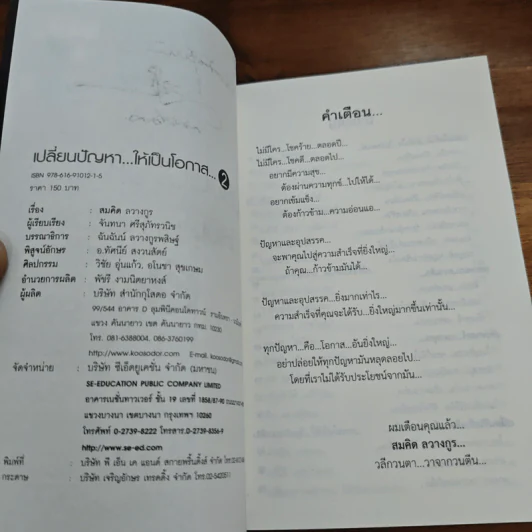 เปลี่ยนปัญหา...ให้เป็นโอกาส... 2
ISBN 978-616-91012-1-5
ราคา 150 บาท
เรื่อง : สมคิด ลวางกูร
ผู้เรียบเรียง : จันทนา ศรีสุภัทรวนิช
บรรณาธิการ : ฉันฉันน์ ลวางกูรพสิษฐ์
พิสูจน์อักษร : อ.ทัศนีย์ สงวนสัตย์
ศิลปกรรม : วิชัย อุ่นแก้ว, อโนชา สุขเกษม
อำนวยการผลิต : พัชรี งามนิตยาหงส์
ผู้ผลิต : บริษัท สำนักกุโสดอ จำกัด
99/544 อาคาร
แขวง คันนายาว เขต คันนายาว กทม 10230
โทร. 081-6388004, 086-3760199
http://www.koosodor.com E-mail.
จัดจำหน่าย : บริษัท ซีเอ็ดยูเคชั่น จำกัด (มหาชน)
SE-EDUCATION PUBLIC COMPANY LIMITED
อาคารเนชั่นทาวเวอร์ ชั้น 19 เลขที่ 1858/87-90
แขวงบางนา เขตบางนา กรุงเทพฯ 10260
โทรศัพท์ 0-2739-8222 โทรสาร.0-2739-8356-9
http://www.se-ed.com
พิมพ์ที่ : บริษัท พี เอ็น เค แอนด์ สกายพริ้นติ้งส์ จำกัด
กระดาษ : บริษัท เจริญอักษร เทรดดิ้ง จำกัด
คำเตือน...
ไม่มีใคร...โชคร้าย...ตลอดปี...
ไม่มีใคร...โชคดี...ตลอดไป...
อยากมีความสุข...
ต้องผ่านความทุกข์...ไปให้ได้...
อยากเข้มแข็ง...
ต้องก้าวข้าม...ความอ่อนแอ...
ปัญหาและอุปสรรค...
จะพาคุณไปสู่ความสำเร็จที่ยิ่งใหญ่...
ถ้าคุณ...ก้าวข้ามมันได้...
ปัญหาและอุปสรรค...ยิ่งมากเท่าไร...
ความสำเร็จที่คุณจะได้รับ...ยิ่งใหญ่มากขึ้นเท่านั้น...
ทุกปัญหา...คือ...โอกาส...อันยิ่งใหญ่...
อย่าปล่อยให้ทุกปัญหามันหลุดลอยไป...
โดยที่เราไม่ได้รับประโยชน์จากมัน...
ผมเตือนคุณแล้ว...
สมคิด ลวางกูร...
วลีกวนตา...วาจากวนตีน...